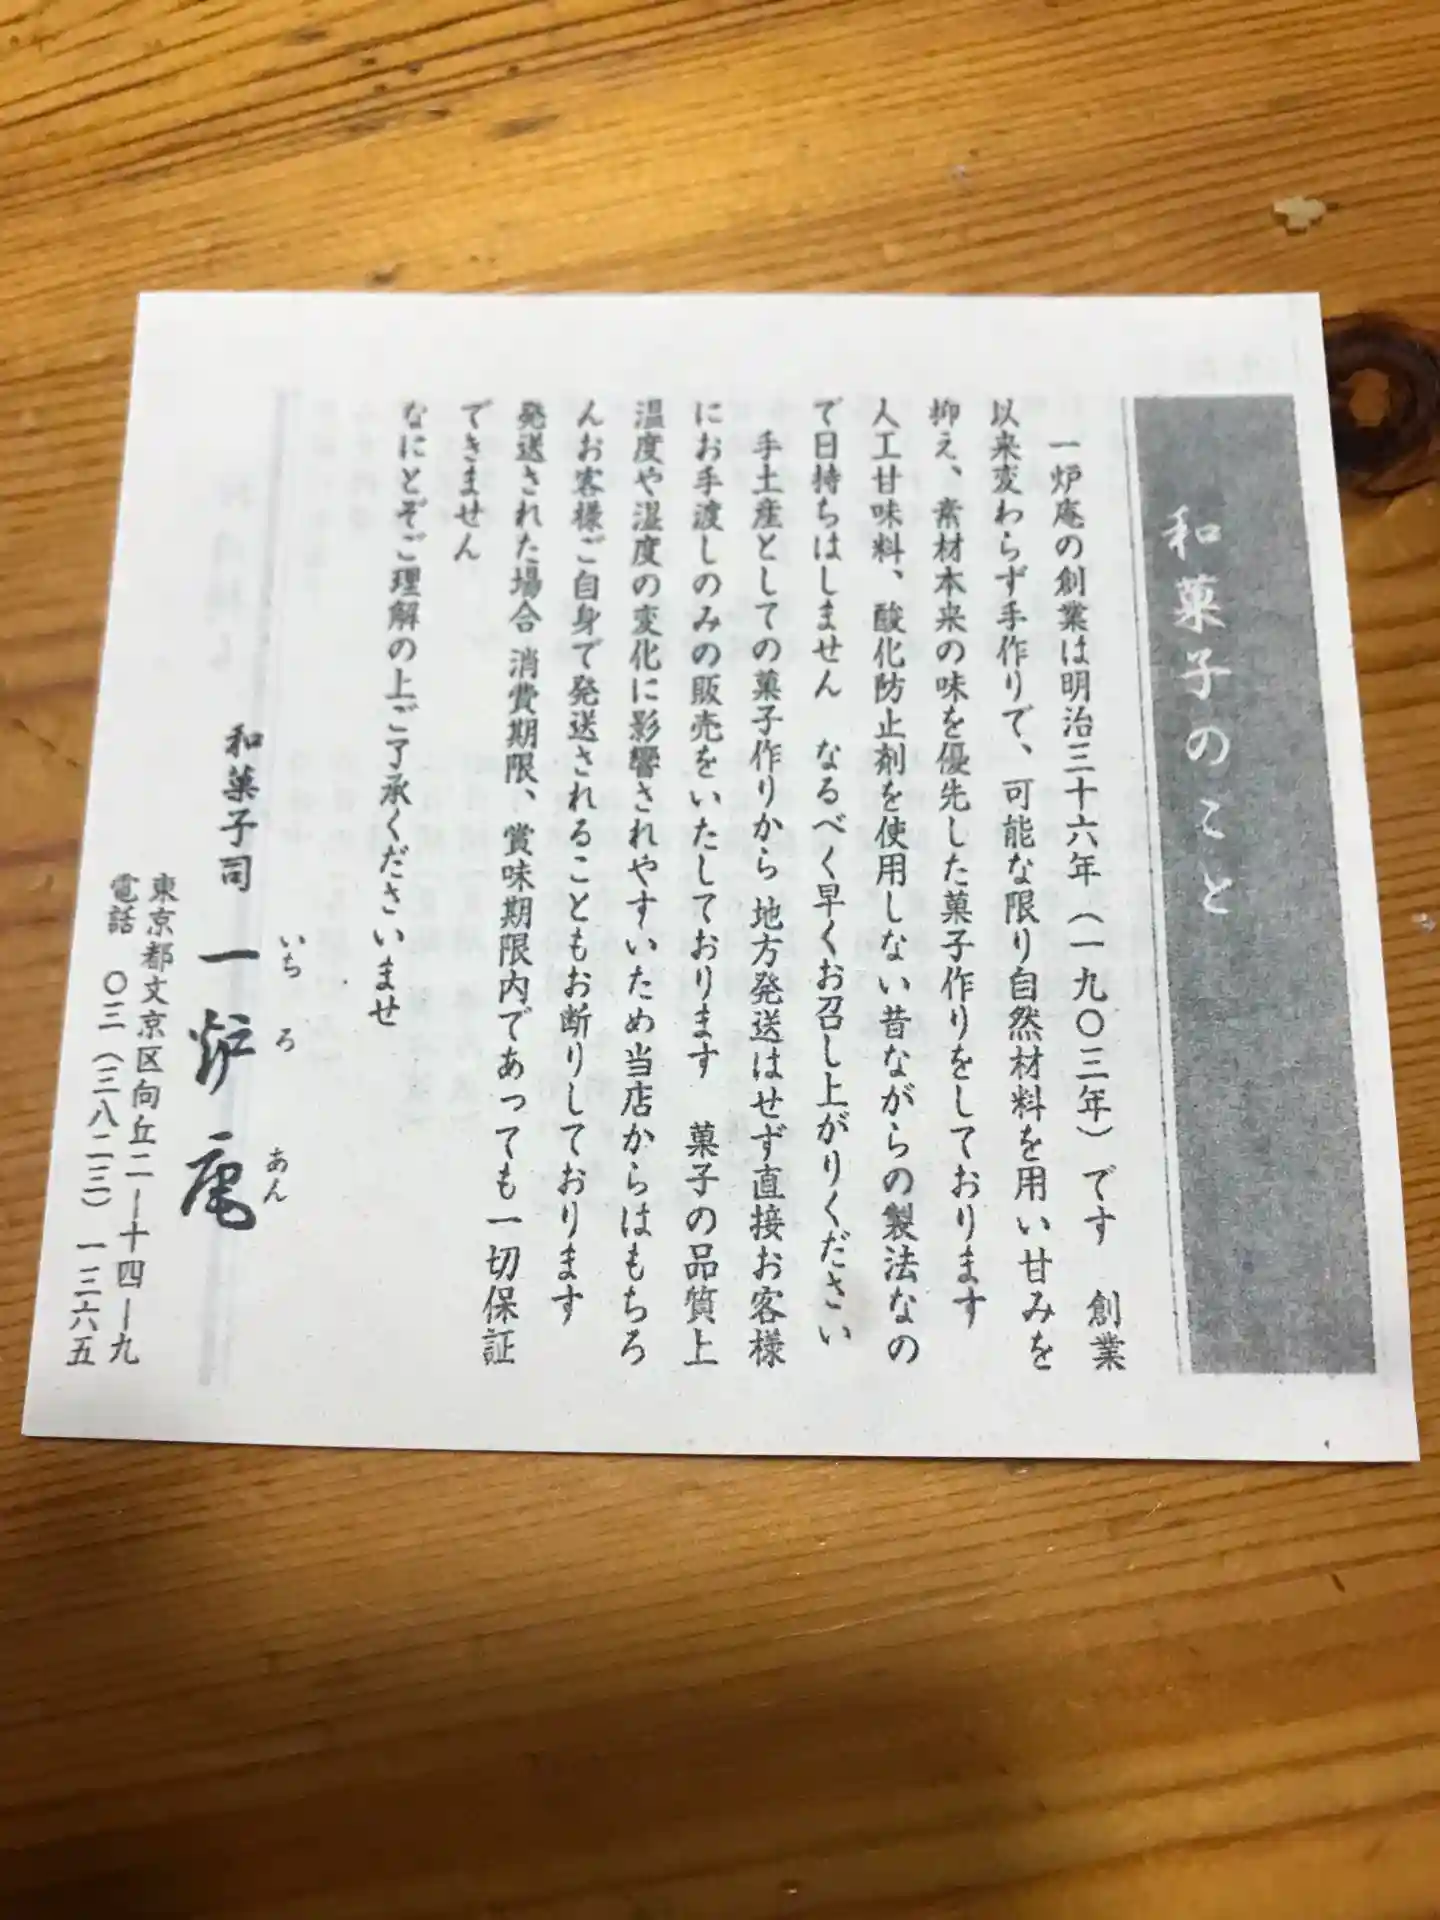 和菓子のこと
一炉庵の創業は明治三十六年（一九〇三年）です　創業
以来変わらず手作りで、可能な限り自然材料を用い甘みを
抑え、素材本来の味を優先した菓子作りをしております
人工甘味料、酸化防止剤を使用しない昔ながらの製法なの
で日持ちはしません　なるべく早くお召し上がりください
手土産としての菓子作りから 地方発送はせず直接お客様
にお手渡しのみの販売をいたしております　菓子の品質上
温度や湿度の変化に影響されやすいため当店からはもちろ
んお客様ご自身で発送されることもお断りしております
発送された場合 消費期限、賞味期限内であっても一切保証
できません
なにとぞご理解の上ご了承くださいませ
和菓子司　一炉庵
いち　ろ　あん
東京都文京区向丘二ー十四ー九
電話　〇三（三八二三）一三六五